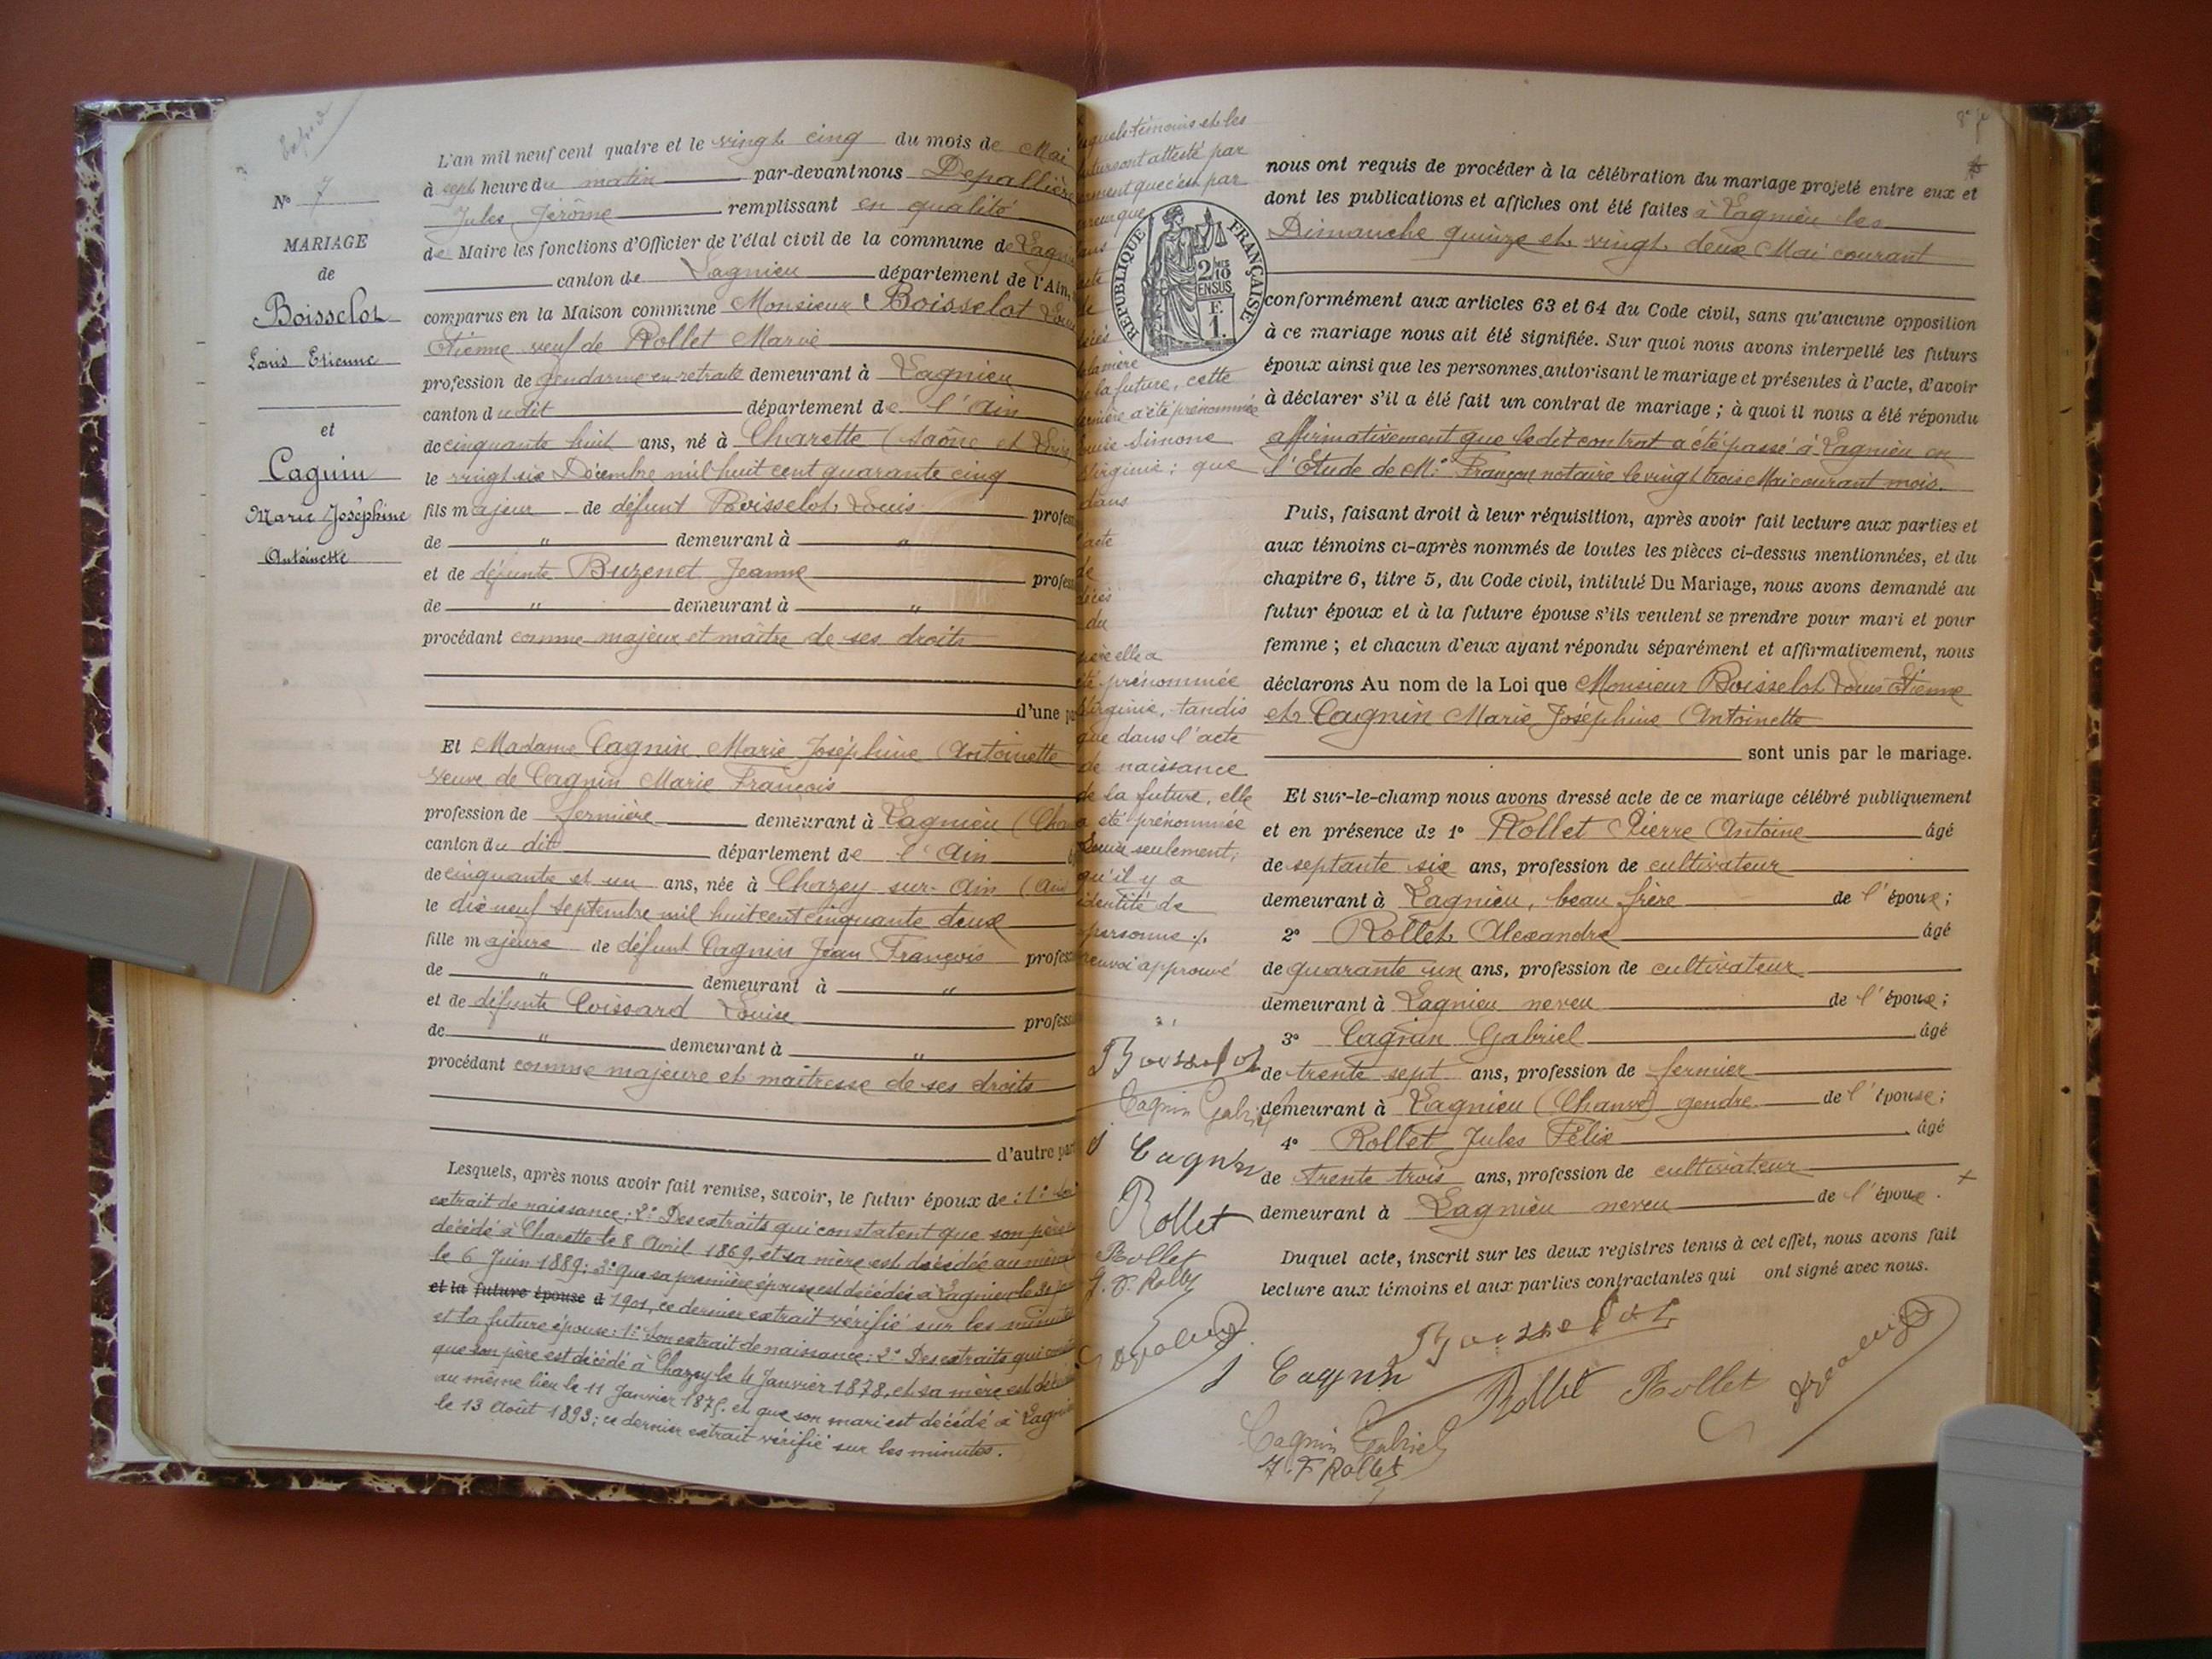 Nº 7
MARIAGE
de
Boisselot
Louis Etienne
et
Cagnin
Marie Joséphine
Antoinette
L'an mil neuf cent quatre et le vingt cinq du mois de Mai
à sept heure du matin par-devant nous Depallière
Jules Jérôme remplissant en qualité
de Maire les fonctions d'Officier de l'état civil de la commune de Lagnieu
canton de Lagnieu département de l'Ain,
comparus en la Maison commune Monsieur Boisselot Louis
Etienne veuf de Rollet Marie
profession de gendarme en retraite demeurant à Lagnieu
canton du dit département de l'Ain
de cinquante huit ans, né à Charette (Saône et Loire
le vingt six Décembre mil huit cent quarante cinq
fils majeur de défunt Boisselot Louis profes
de " demeurant à "
et de défunte Buzenet Jeanne profes
de " demeurant à "
procédant comme majeur et maître de ses droits
d'une pa
Et Madame Cagnin Marie Joséphine Antoinette
veuve de Cagnin Marie François
profession de fermière demeurant à Lagnieu (Cha
canton du dit département de l'Ain
de cinquante et un ans, née à Chazey-sur-Ain (Ain
le dix neuf Septembre mil huit cent cinquante deux
fille majeure de défunt Cagnin Jean François profes
de " demeurant à "
et de défunte Coissard Louise profess
de " demeurant à "
procédant comme majeure et maîtresse de ses droits
d'autre part
Lesquels, après nous avoir fait remise, savoir, le futur époux de : 1º Son
extrait de naissance ; 2º Des extraits qui constatent que son père
décédé à Charette le 8 Avril 1869, et sa mère est décédée au même
le 6 Juin 1889 ; 3º que sa première épouse est décédée à Lagnieu le
et la future épouse d 1901, ce dernier extrait vérifié sur les minutes
et la future épouse : 1º Son extrait de naissance ; 2º Des extraits qui
que son père est décédé à Chazey le 4 Janvier 1878, et sa mère est
au même lieu le 11 Janvier 1875. et que son mari est décédé à Lagnieu
le 13 Août 1893 ; ce dernier extrait vérifié sur les minutes.
quels témoins et les
futurs ont attesté par
ment que c'est par
erreur que
dans
acte
de
décès
de la mère
de la future, cette
dernière a été prénommée
Louise Simone
Virginie ; que
dans
l'acte
de
décès
du
père elle a
été prénommée
Virginie, tandis
que dans l'acte
de naissance
de la future, elle
a été prénommée
Louise seulement,
qu'il y a
identité de
personne ./.
renvoi approuvé
Boisselot
Cagnin Gabriel
J Cagnin
Rollet
Rollet
J. F. Rollet
RÉPUBLIQUE FRANÇAISE
2/10
EN SUS
F.
1.
nous ont requis de procéder à la célébration du mariage projeté entre eux et
dont les publications et affiches ont été faites à Lagnieu les
Dimanche quinze et vingt deux Mai courant
conformément aux articles 63 et 64 du Code civil, sans qu'aucune opposition
à ce mariage nous ait été signifiée. Sur quoi nous avons interpellé les futurs
époux ainsi que les personnes autorisant le mariage et présentes à l'acte, d'avoir
à déclarer s'il a été fait un contrat de mariage ; à quoi il nous a été répondu
affirmativement que le dit contrat a été passé à Lagnieu en
l'Etude de Mº Françon notaire le vingt trois Mai courant mois.
Puis, faisant droit à leur réquisition, après avoir fait lecture aux parties et
aux témoins ci-après nommés de toutes les pièces ci-dessus mentionnées, et du
chapitre 6, titre 5, du Code civil, intitulé Du Mariage, nous avons demandé au
futur époux et à la future épouse s'ils veulent se prendre pour mari et pour
femme ; et chacun d'eux ayant répondu séparément et affirmativement, nous
déclarons Au nom de la Loi que Monsieur Boisselot Louis Etienne
et Cagnin Marie Joséphine Antoinette
sont unis par le mariage.
Et sur-le-champ nous avons dressé acte de ce mariage célébré publiquement
et en présence de 1º Rollet Pierre Antoine âgé
de septante six ans, profession de cultivateur
demeurant à Lagnieu, beau frère de l'époux ;
2º Rollet Alexandre âgé
de quarante un ans, profession de cultivateur
demeurant à Lagnieu neveu de l'époux ;
3º Cagnin Gabriel âgé
de trente sept ans, profession de fermier
demeurant à Lagnieu (Chanves) gendre de l'épouse ;
4º Rollet Jules Félix âgé
de trente trois ans, profession de cultivateur
demeurant à Lagnieu neveu de l'époux.
Duquel acte, inscrit sur les deux registres tenus à cet effet, nous avons fait
lecture aux témoins et aux parties contractantes qui ont signé avec nous.
Boisselot
J Cagnin
Rollet Rollet
Cagnin Gabriel
J. F Rollet